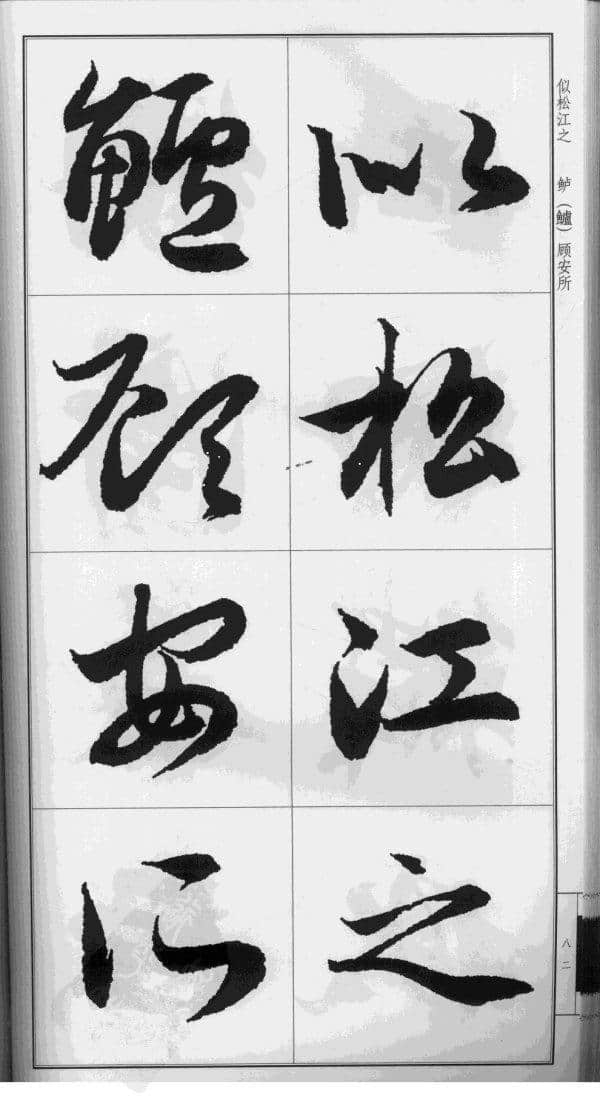 似松江之 鲈（鱸）顾安所
似松江之
鱸顾安所
八二